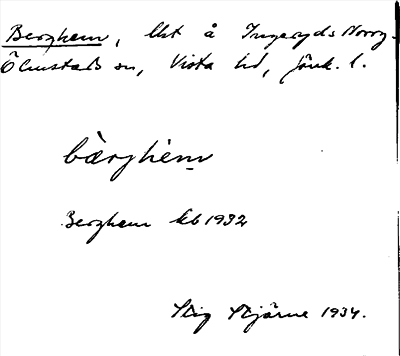 Berghem, lht å Ingaryds Norrg.
Ölmstads sn, Vista hd, Jönk. l.
bærghem
Berghem kb 1932
Stig Stjärne 1934.